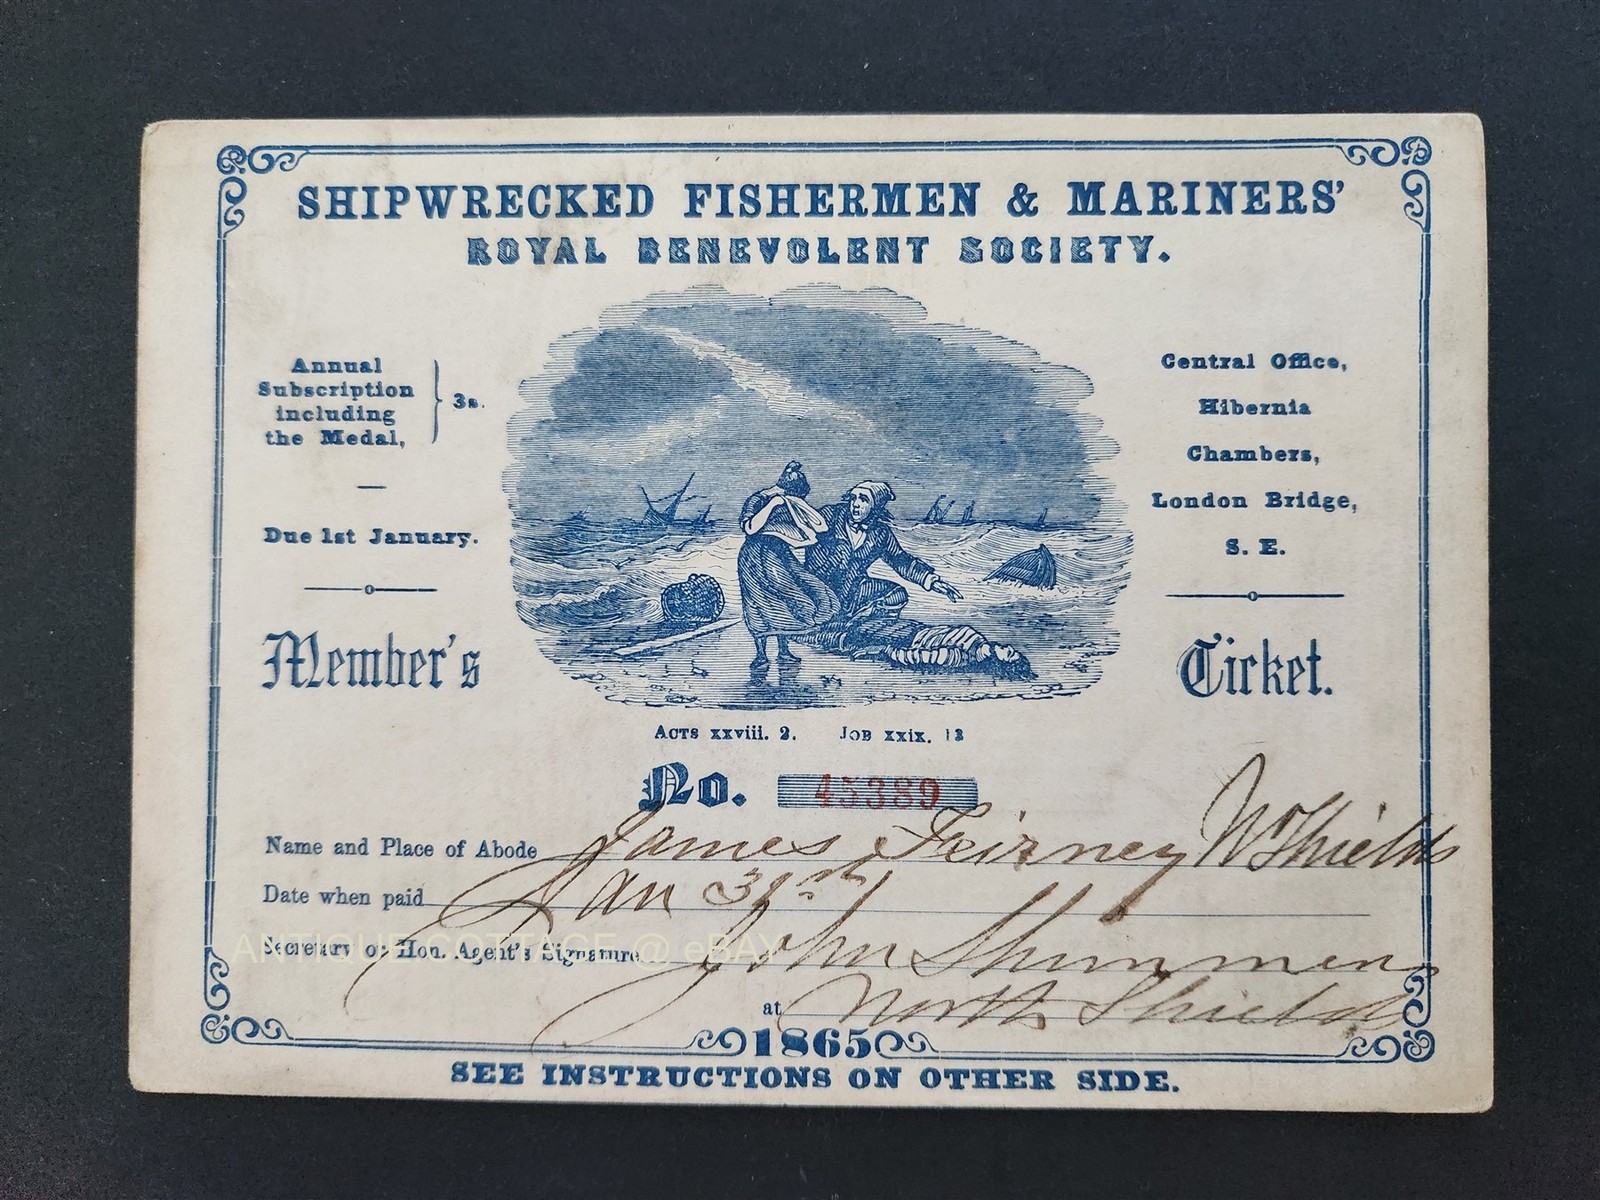 SHIPWRECKED FISHERMEN & MARINERS'
ROYAL BENEVOLENT SOCIETY.
Annual
Subscription
including
the Medal,
3s.
Due 1st January.
Central Office,
Hibernia
Chambers,
London Bridge,
S. E.
Member's
Ticket.
ACTS xxviii. 2. JOB xxix. 13
No. 45389
Name and Place of Abode James Feirney N Shields
Date when paid Jan 31st
Secretary or Hon. Agent's Signature John Shimmens
at North Shields
ANTIQUE COTTAGE @ eBAY
1865
SEE INSTRUCTIONS ON OTHER SIDE.